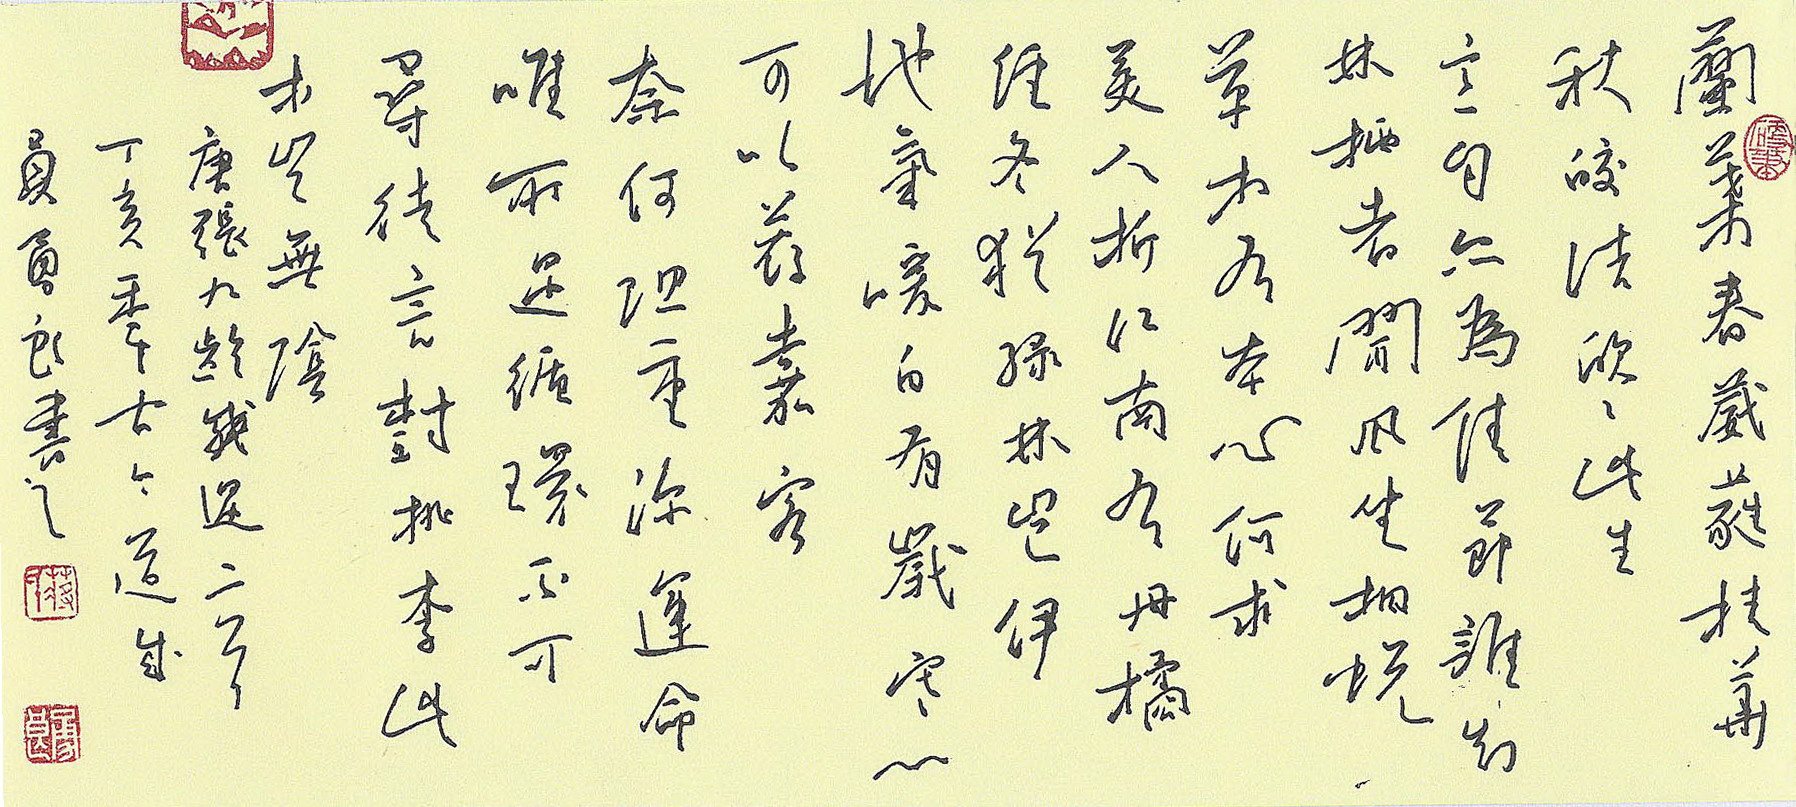 蘭葉春葳蕤桂華
秋皎洁欣〻此生
意自尔為佳節誰知
林栖者聞风坐相悦
草木有本心何求
美人折江南有丹橘
经冬犹绿林豈伊
地氣暖自有歲寒心
可以荐嘉客
奈何阻重深運命
唯所遇循環不可
尋徒言樹桃李此
木豈無陰
唐張九齡感遇二首
丁亥季古今道
書之